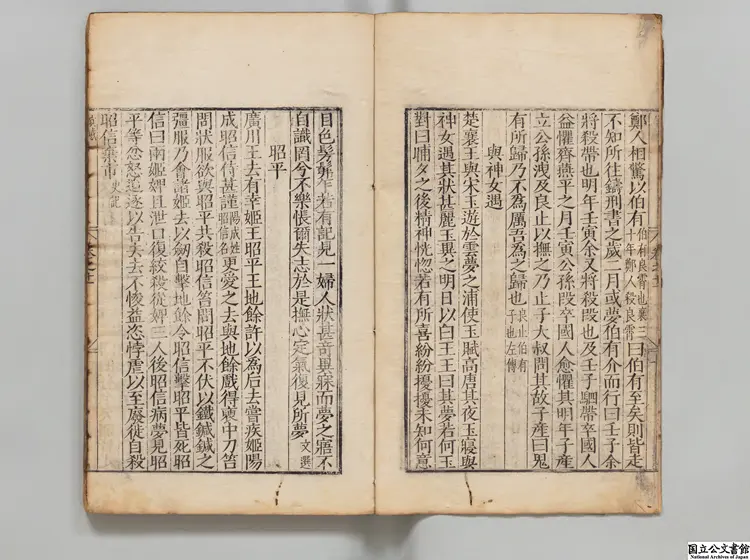 鄭人相驚以伯有伯有良霄也襄三十年鄭人殺良霄曰伯有至矣則皆走
不知所往鑄刑書之歲二月或夢伯有介而行曰壬子余
將殺帶也明年壬寅余又將殺段也及壬子駟帶卒國人
益懼齊燕平之月壬寅公孫段卒國人愈懼其明年子產
立公孫洩及良止以撫之乃止子大叔問其故子產曰鬼
有所歸乃不為厲吾為之歸也良止伯有子也左傳
與神女遇
楚襄王與宋玉遊於雲夢之浦使玉賦高唐其夜玉寢與
神女遇其狀甚麗玉異之明日以白王王曰其夢若何玉
對曰晡夕之後精神恍惚若有所喜紛紛擾擾未知何意
目色髣髴乍若有記見一婦人狀甚奇異寐而夢之寤不
自識罔兮不樂悵爾失志於是撫心定氣復見所夢文選
昭平
廣川王去有幸姬王昭平王地餘許以為后去嘗疾姬陽
成昭信侍甚謹陽成姓昭信名更愛之去與地餘戲得褏中刀笞
問狀服欲與昭平共殺昭信笞問昭平不伏以鐵鍼鍼之
彊服乃會諸姬去以劔自擊地餘令昭信擊昭平皆死昭
信曰兩姬婢且泄口復絞殺從婢三人後昭信病夢見昭
平等怒遂以告去去不悛益恣悖虐以至廢徙自殺
昭信棄市史記
国立公文書館
National Archives of Japan